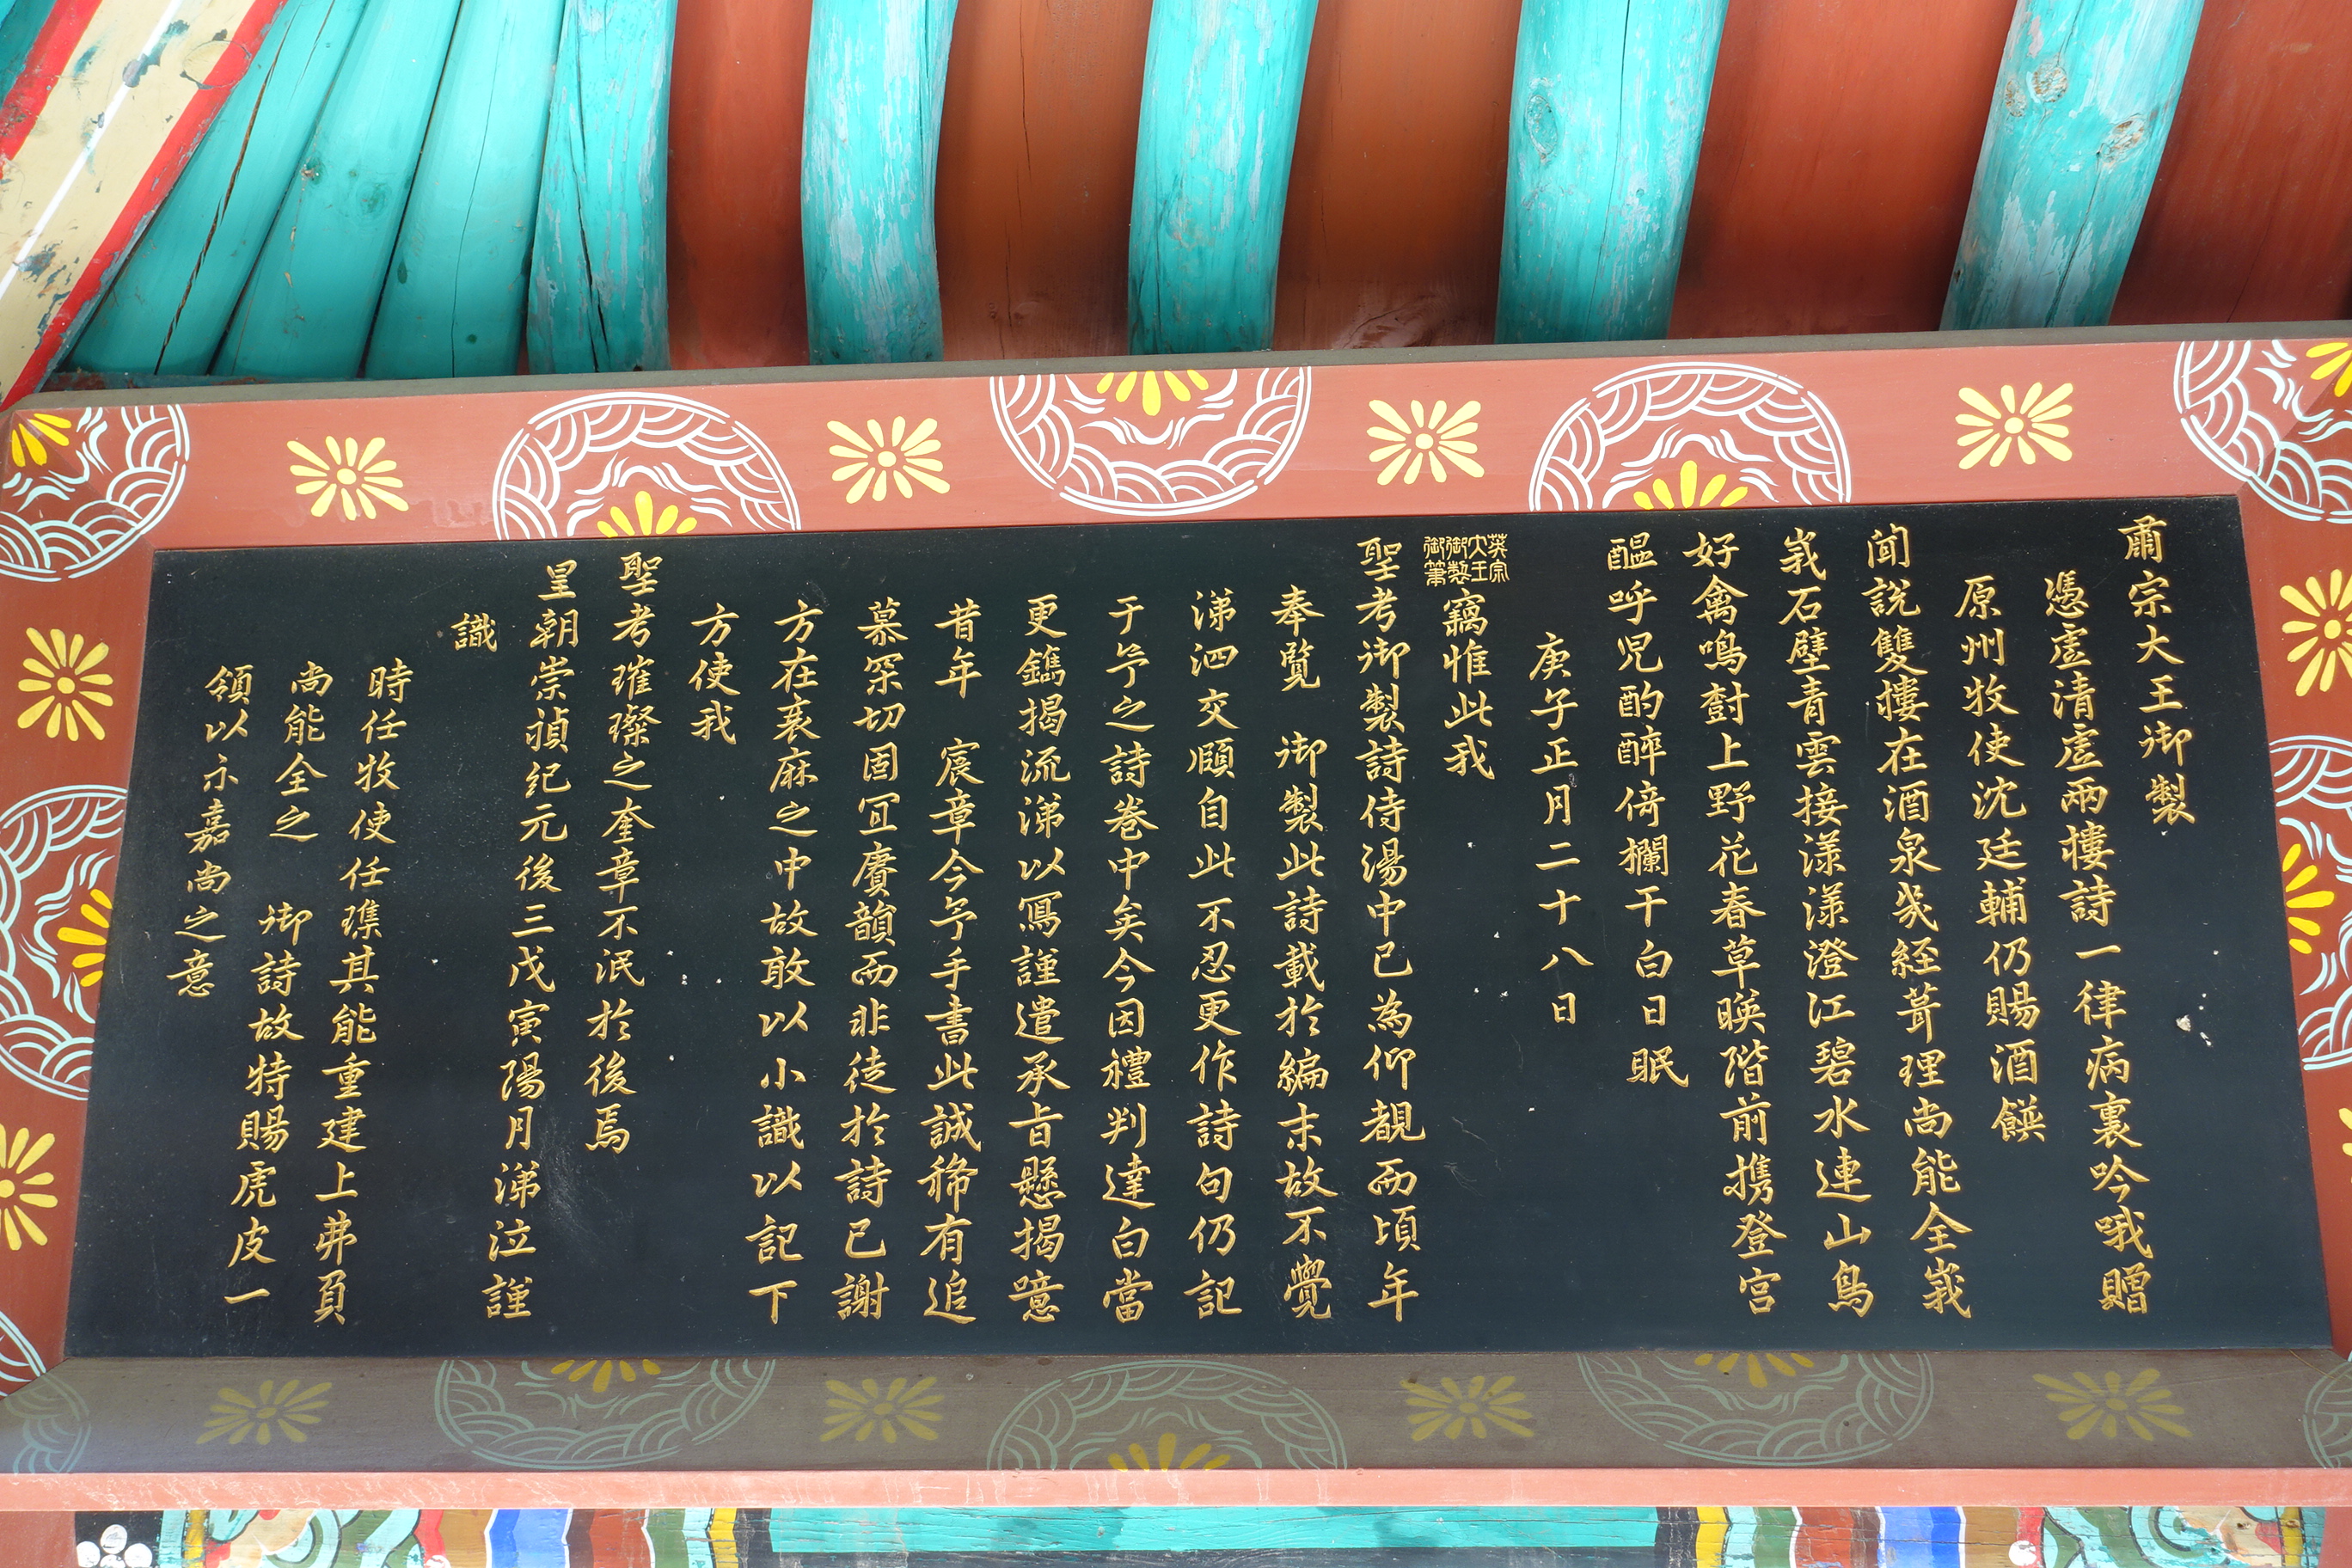 肅宗大王御製
憑虛清虛兩樓詩一律病裏吟哦贈
原州牧使沈廷輔仍賜酒饌
聞說雙樓在酒泉幾經葺理尚能全峩
峩石壁青雲接漾漾澄江碧水連山鳥
好禽鳴樹上野花春草暎階前携登宮
醞呼兒酌醉倚欄干白日眠
庚子正月二十八日
英宗大王御製御筆
竊惟此我
聖考御製詩侍湯中已為仰覩而頃年
奉覽 御製此詩載於編末故不覺
涕泗交頤自此不忍更作詩句仍記
于予之詩卷中矣今因禮判達白當
更鐫揭流涕以寫謹遣承旨懸揭噫
昔年 宸章今予手書此誠稀有追
慕深切固宜賡韻而非徒於詩已謝
方在衰麻之中故敢以小識以記下
方使我
聖考璀璨之奎章不泯於後焉
皇朝崇禎紀元後三戊寅陽月涕泣謹
識
時任牧使任㻐其能重建上弗負
尚能全之 御詩故特賜虎皮一
領以示嘉尚之意